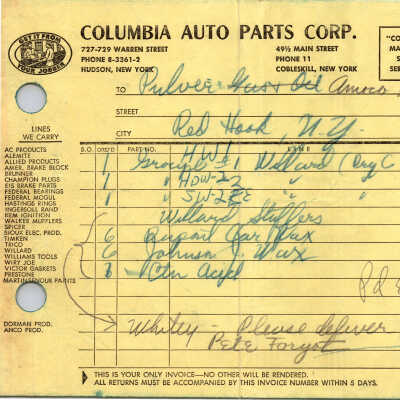 GET IT FROM
YOUR JOBBER
COLUMBIA AUTO PARTS CORP.
727-729 WARREN STREET
PHONE 8-3361-2
HUDSON, NEW YORK
49½ MAIN STREET
PHONE 11
COBLESKILL, NEW YORK
TO Pulver Gas & Oil Amoco
STREET
CITY Red Hook, N.Y.
LINES
WE CARRY
AC PRODUCTS
ALEMITE
ALLIED PRODUCTS
AMER. BRAKE BLOCK
BRUNNER
CHAMPION PLUGS
EIS BRAKE PARTS
FEDERAL BEARINGS
FEDERAL MOGUL
HASTINGS RINGS
INGERSOLL RAND
KEM IGNITION
WALKER MUFFLERS
SPICER
SIOUX ELEC. PROD.
TIMKEN
TRICO
WILLARD
WILLIAMS TOOLS
WIRY JOE
VICTOR GASKETS
PRESTONE
MARTIN SENOUR PAINTS
DORMAN PROD.
ANCO PROD.
S.O. ORD'D PART NO. LINE
HW-1
1 Group #1 Willard (Dry C
1 HDW-22 " "
1 SW-2EE " "
Willard Stuffers
6 Car Wax
6 Johnson J. Wax
8 Ctn Acid
Pd
Whitey - Please deliver
Pete Forgot
THIS IS YOUR ONLY INVOICE—NO OTHER WILL BE RENDERED.
ALL RETURNS MUST BE ACCOMPANIED BY THIS INVOICE NUMBER WITHIN 5 DAYS.